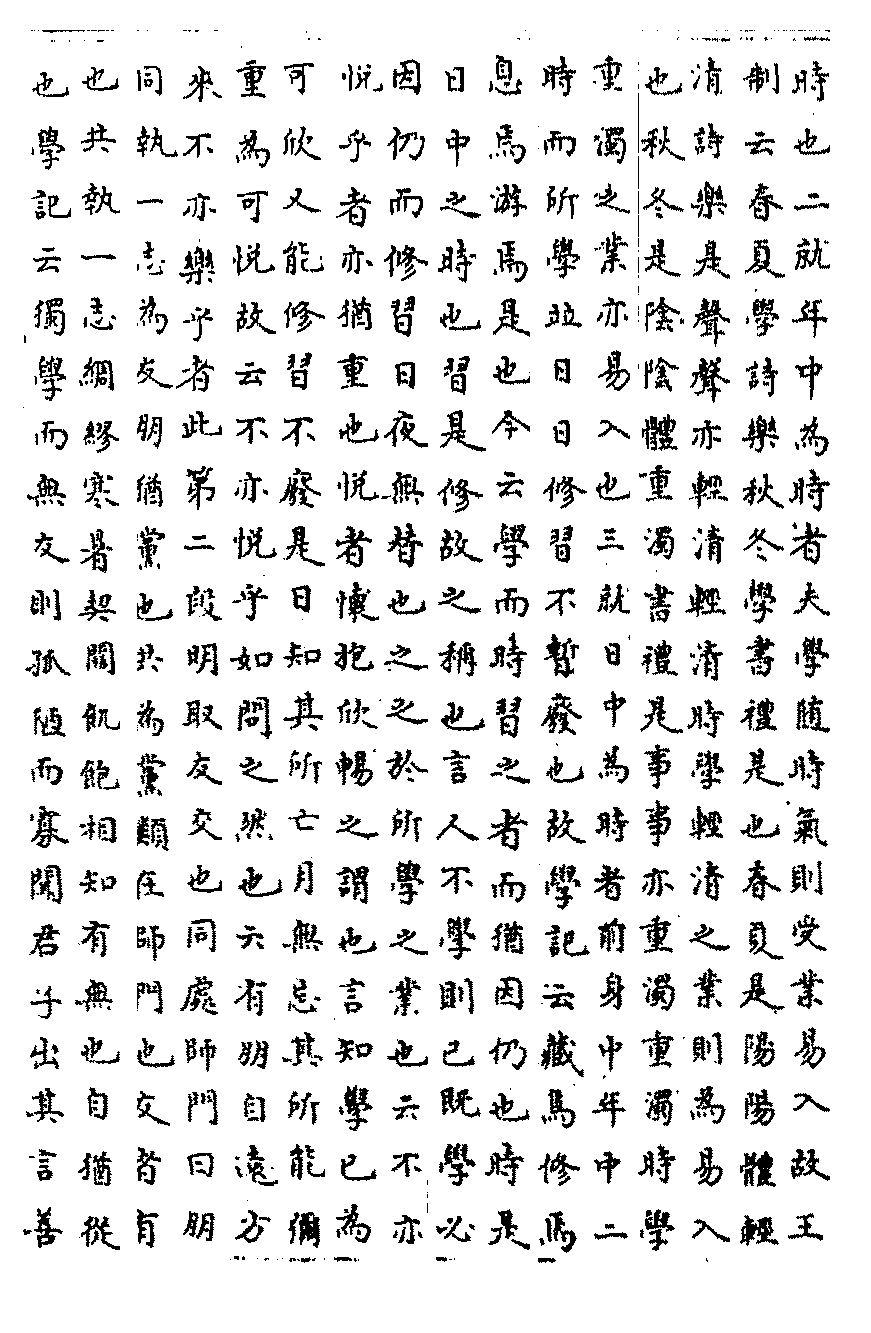 時也二就年中為時者夫學随時氣則受業易入故王
制云春夏學詩樂秋冬學書禮是也春夏是陽陽體輕
清詩樂是聲聲亦輕清輕清時學輕清之業則為易入
也秋冬是陰陰體重濁書禮是事事亦重濁重濁時學
重濁之業亦易入也三就日中為時者前身中年中二
時而所學並日日修習不暫廢也故學記云藏焉修焉
息焉游焉是也今云學而時習之者而猶因仍也時是
日中之時也習是修故之稱也言人不學則已既學必
因仍而修習日夜無替也之之於所學之業也云不亦
悦乎者亦猶重也悦者懷抱欣暢之謂也言知學已為
可欣又能修習不廢是日知其所亡月無忘其所能彌
重為可悦故云不亦悦乎如問之然也云有朋自遠方
來不亦樂乎者此第二段明取友交也同處師門曰朋
同執一志為友朋猶黨也共為黨類在師門也友者有
也共執一志綢繆寒暑契闊飢飽相知有無也自猶從
也學記云獨學而無友則孤陋而寡聞君子出其言善